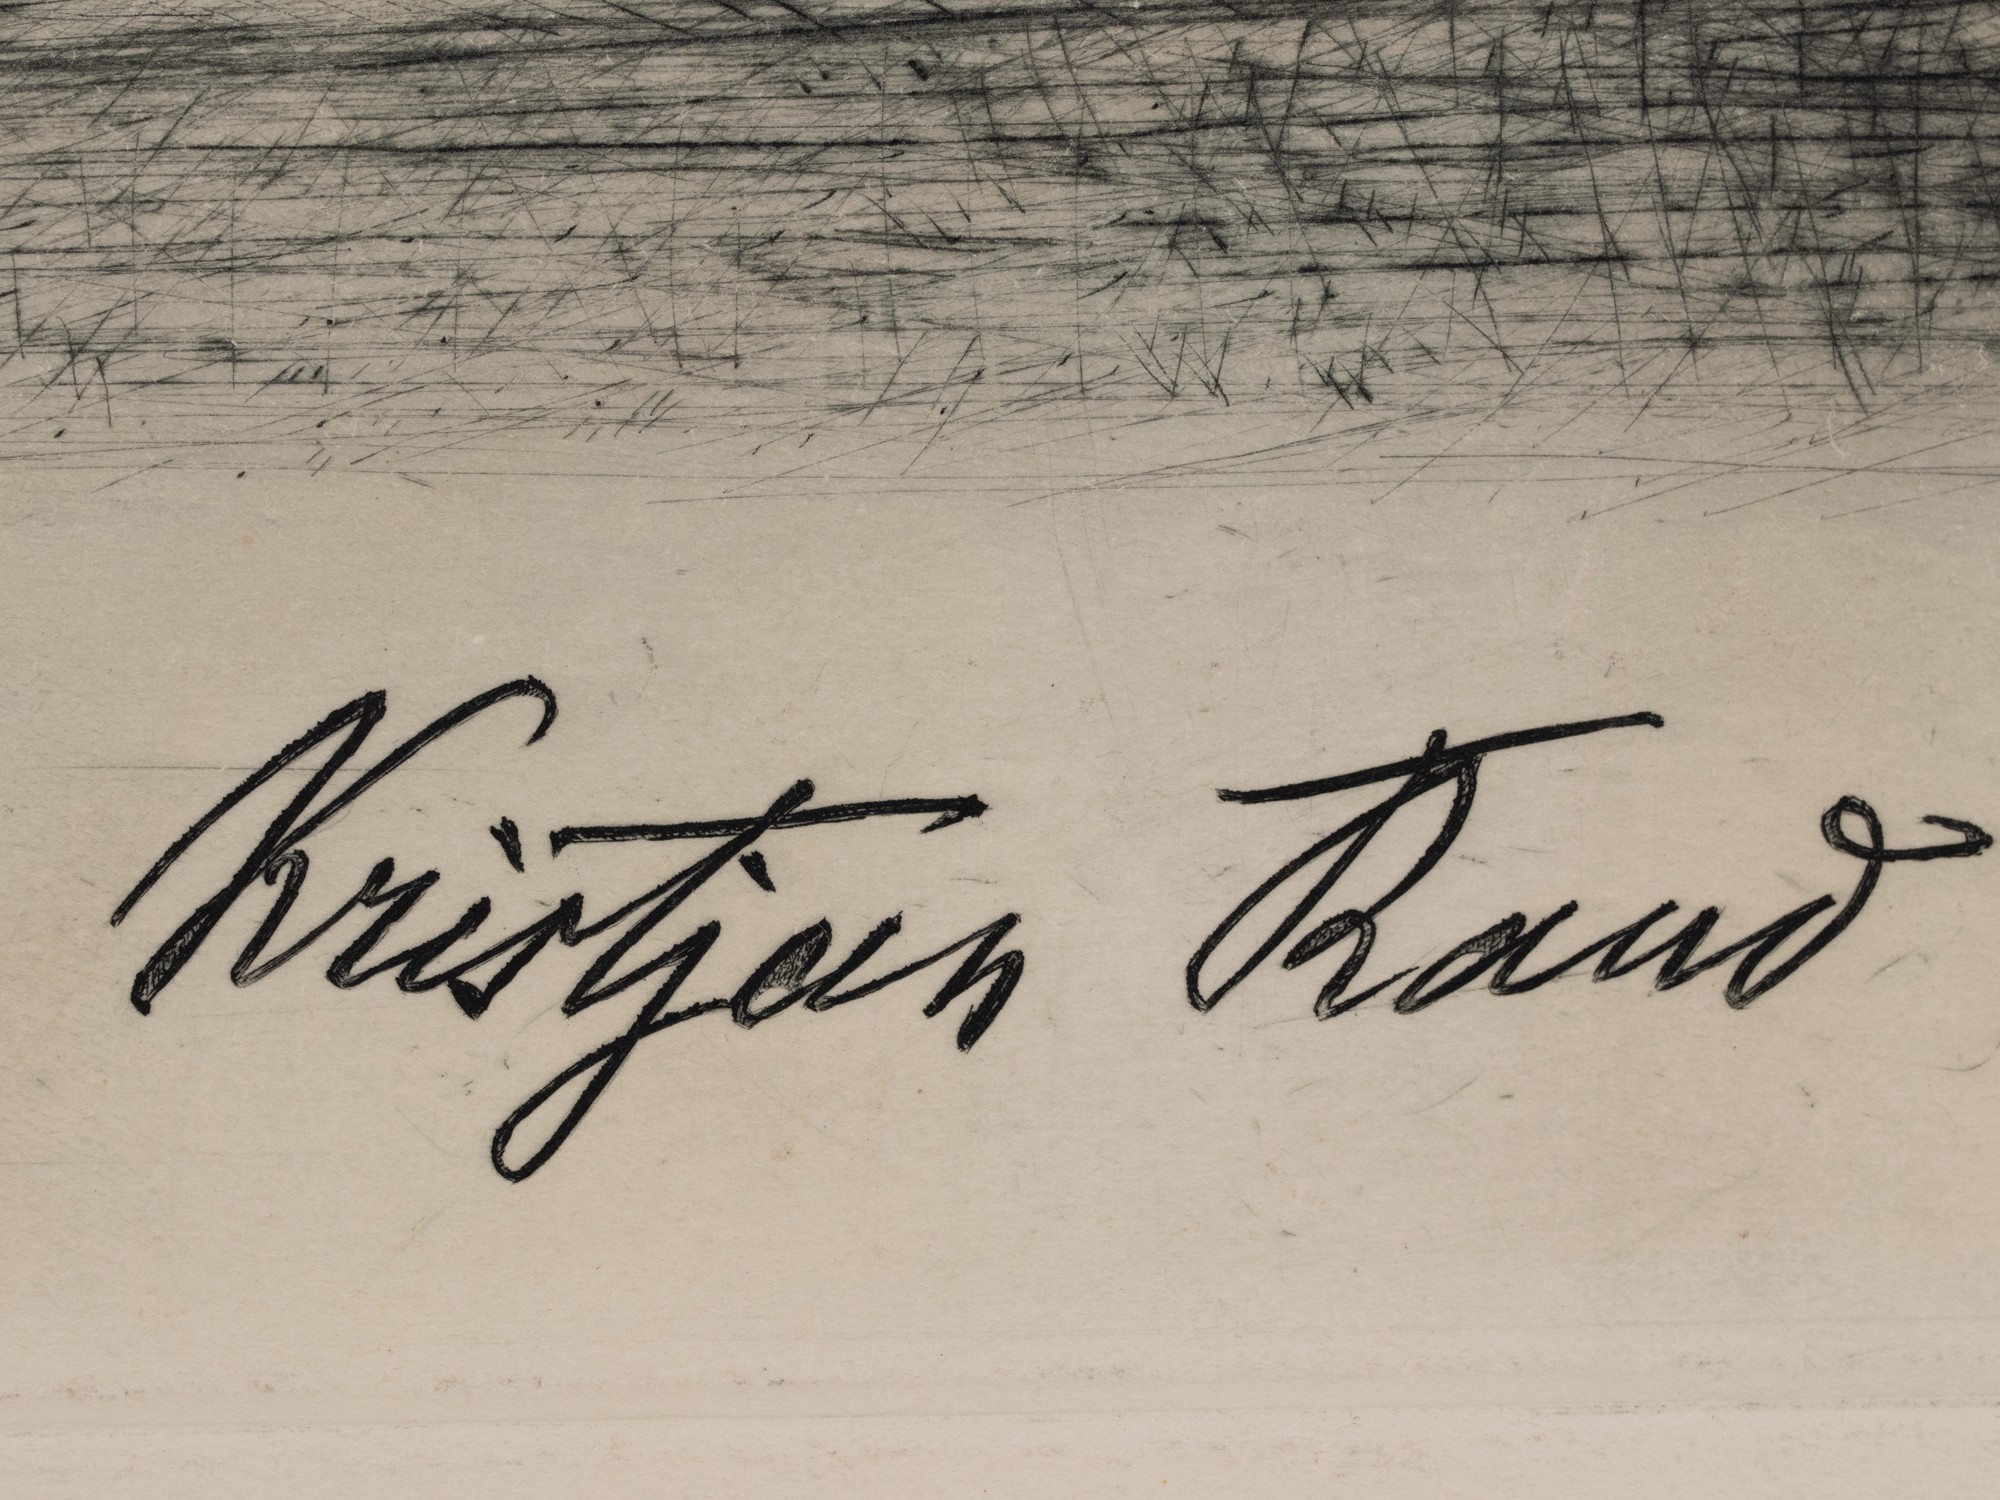 Kristjan Raud